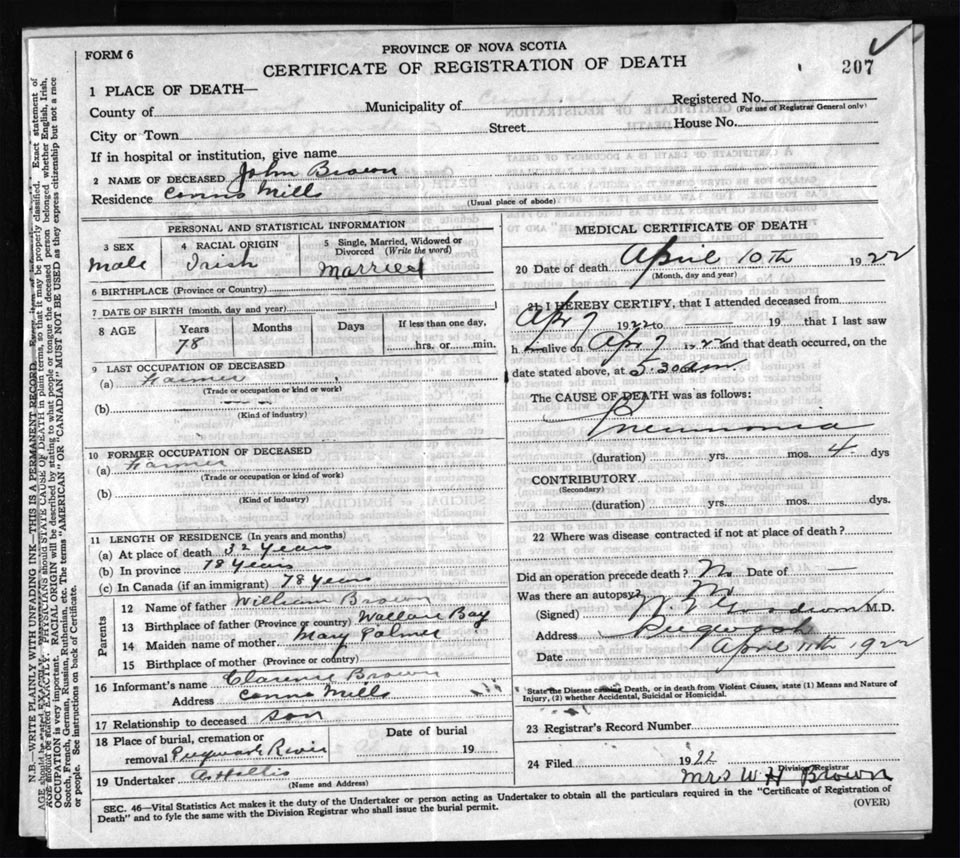 FORM 6
PROVINCE OF NOVA SCOTIA
CERTIFICATE OF REGISTRATION OF DEATH
207
1 PLACE OF DEATH—
County of
Municipality of
Registered No.
(For use of Registrar General only)
City or Town
Street
House No.
If in hospital or institution, give name
2 NAME OF DECEASED John Brown
Residence Conns Mills
(Usual place of abode)
PERSONAL AND STATISTICAL INFORMATION
3 SEX
male
4 RACIAL ORIGIN
Irish
5 Single, Married, Widowed or Divorced (Write the word)
Married
6 BIRTHPLACE (Province or Country)
7 DATE OF BIRTH (month, day and year)
8 AGE
Years
Months
Days
If less than one day,
78
hrs. or min.
9 LAST OCCUPATION OF DECEASED
(a) Farmer
(Trade or occupation or kind or work)
(b)
(Kind of industry)
10 FORMER OCCUPATION OF DECEASED
(a) Farmer
(Trade or occupation or kind of work)
(b)
(Kind of industry)
11 LENGTH OF RESIDENCE (In years and months)
(a) At place of death 32 Years
(b) In province 78 Years
(c) In Canada (if an immigrant) 78 Years
Parents
12 Name of father William Brown
13 Birthplace of father (Province or country) Wallace Bay
14 Maiden name of mother Mary Palmer
15 Birthplace of mother (Province or country)
16 Informant's name Clarence Brown
Address Conns Mills
17 Relationship to deceased son
18 Place of burial, cremation or removal Pugwash River
Date of burial
19
19 Undertaker
(Name and Address)
MEDICAL CERTIFICATE OF DEATH
20 Date of death April 10th 1922
(Month, day and year)
21 I HEREBY CERTIFY, that I attended deceased from
Apr 7 1922 to 19 that I last saw
h alive on Apr 7 1922 and that death occurred, on
date stated above, at 5.30 am.
The CAUSE OF DEATH was as follows:
Pneumonia
(duration) yrs. mos. 4 dys
CONTRIBUTORY
(Secondary)
(duration) yrs. mos. dys.
22 Where was disease contracted if not at place of death?
Did an operation precede death? No Date of —
Was there an autopsy?
(Signed) M.D.
Address Pugwash
Date April 11th 1922
State the Disease causing Death, or in death from Violent Causes, state (1) Means and Nature of
Injury, (2) whether Accidental, Suicidal or Homicidal.
23 Registrar's Record Number
24 Filed 1922
Division Registrar
Mrs W H Brown
SEC. 46—Vital Statistics Act makes it the duty of the Undertaker or person acting as Undertaker to obtain all the particulars required in the "Certificate of Registration of
Death" and to fyle the same with the Division Registrar who shall issue the burial permit.
(OVER)
N.B.—WRITE PLAINLY WITH UNFADING INK—THIS IS A PERMANENT RECORD.
AGE should be stated EXACTLY. PHYSICIANS should STATE CAUSE OF DEATH in plain terms, so that it may be properly classified. Exact statement of
OCCUPATION is very important. RACIAL ORIGIN will be described by stating to what people or tongue the deceased person belonged whether English, Irish,
Scotch, French, German, Russian, Ruthenian, etc. The terms "AMERICAN" or "CANADIAN" MUST NOT BE USED as they express citizenship but not a race
or people. See instructions on back of Certificate.